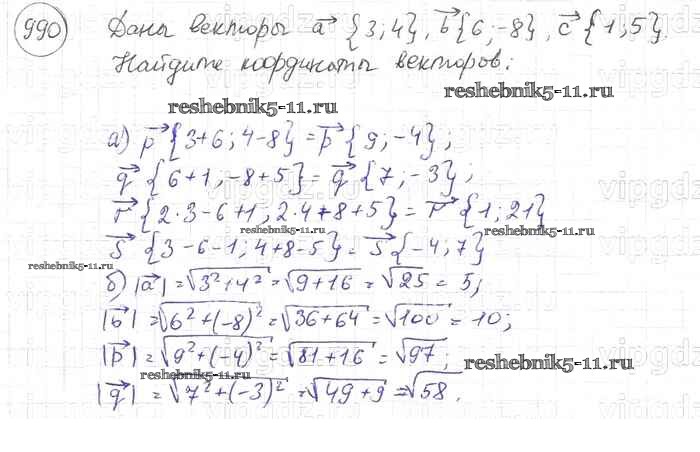 990 Даны векторы a {3;4}, b{6;-8}, c{1;5}.
Найдите координаты векторов:
reshebnik5-11.ru
а) p {3+6; 4-8} = p {9; -4};
q {6+1; -8+5} = q {7; -3};
r {2·3-6+1; 2·4+8+5} = r {1; 21}
reshebnik5-11.ru reshebnik5-11.ru
s {3-6-1; 4+8-5} = s {-4; 7}
reshebnik5-11.ru
б) |a| = √3²+4² = √9+16 = √25 = 5;
|b| = √6²+(-8)² = √36+64 = √100 = 10;
|p| = √9²+(-4)² = √81+16 = √97;
reshebnik5-11.ru reshebnik5-11.ru
|q| = √7²+(-3)² = √49+9 = √58.